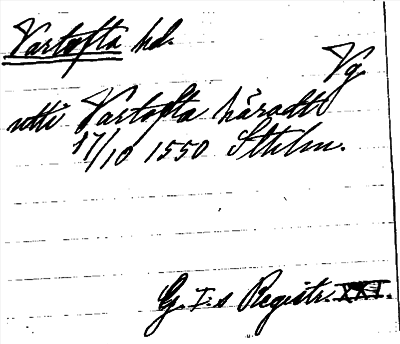 Vartofta hd.
Vg
utti Vartofta häradtt
17/10 1550 Sthlm.
G. I:s Registr. XXI.